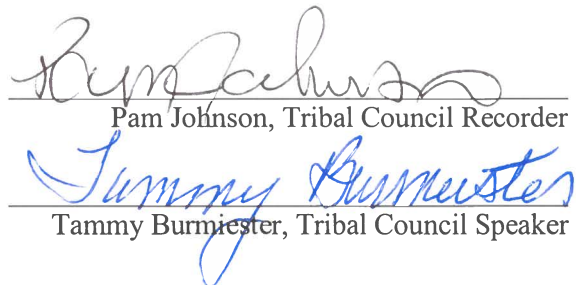 Pam Johnson
Pam Johnson, Tribal Council Recorder
Tammy Burmiester
Tammy Burmiester, Tribal Council Speaker